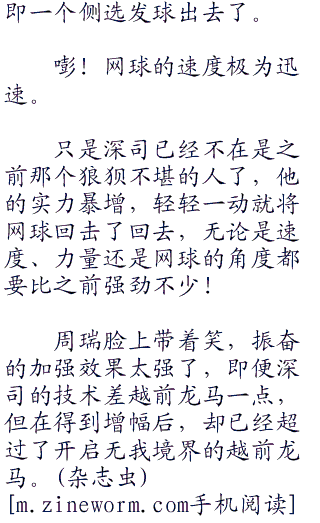 即一个侧选发球出去了。
嘭！网球的速度极为迅
速。
只是深司已经不在是之
前那个狼狈不堪的人了，他
的实力暴增，轻轻一动就将
网球回去了回去，无论是速
度、力量还是网球的角度都
要比之前强劲不少！
周瑞脸上带着笑，振奋
的加强效果太强了，即便深
司的技术差越前龙马一点，
但在得到增幅后，却已经超
过了开启无我境界的越前龙
马。(杂志虫)
[m.zineworm.com手机阅读]